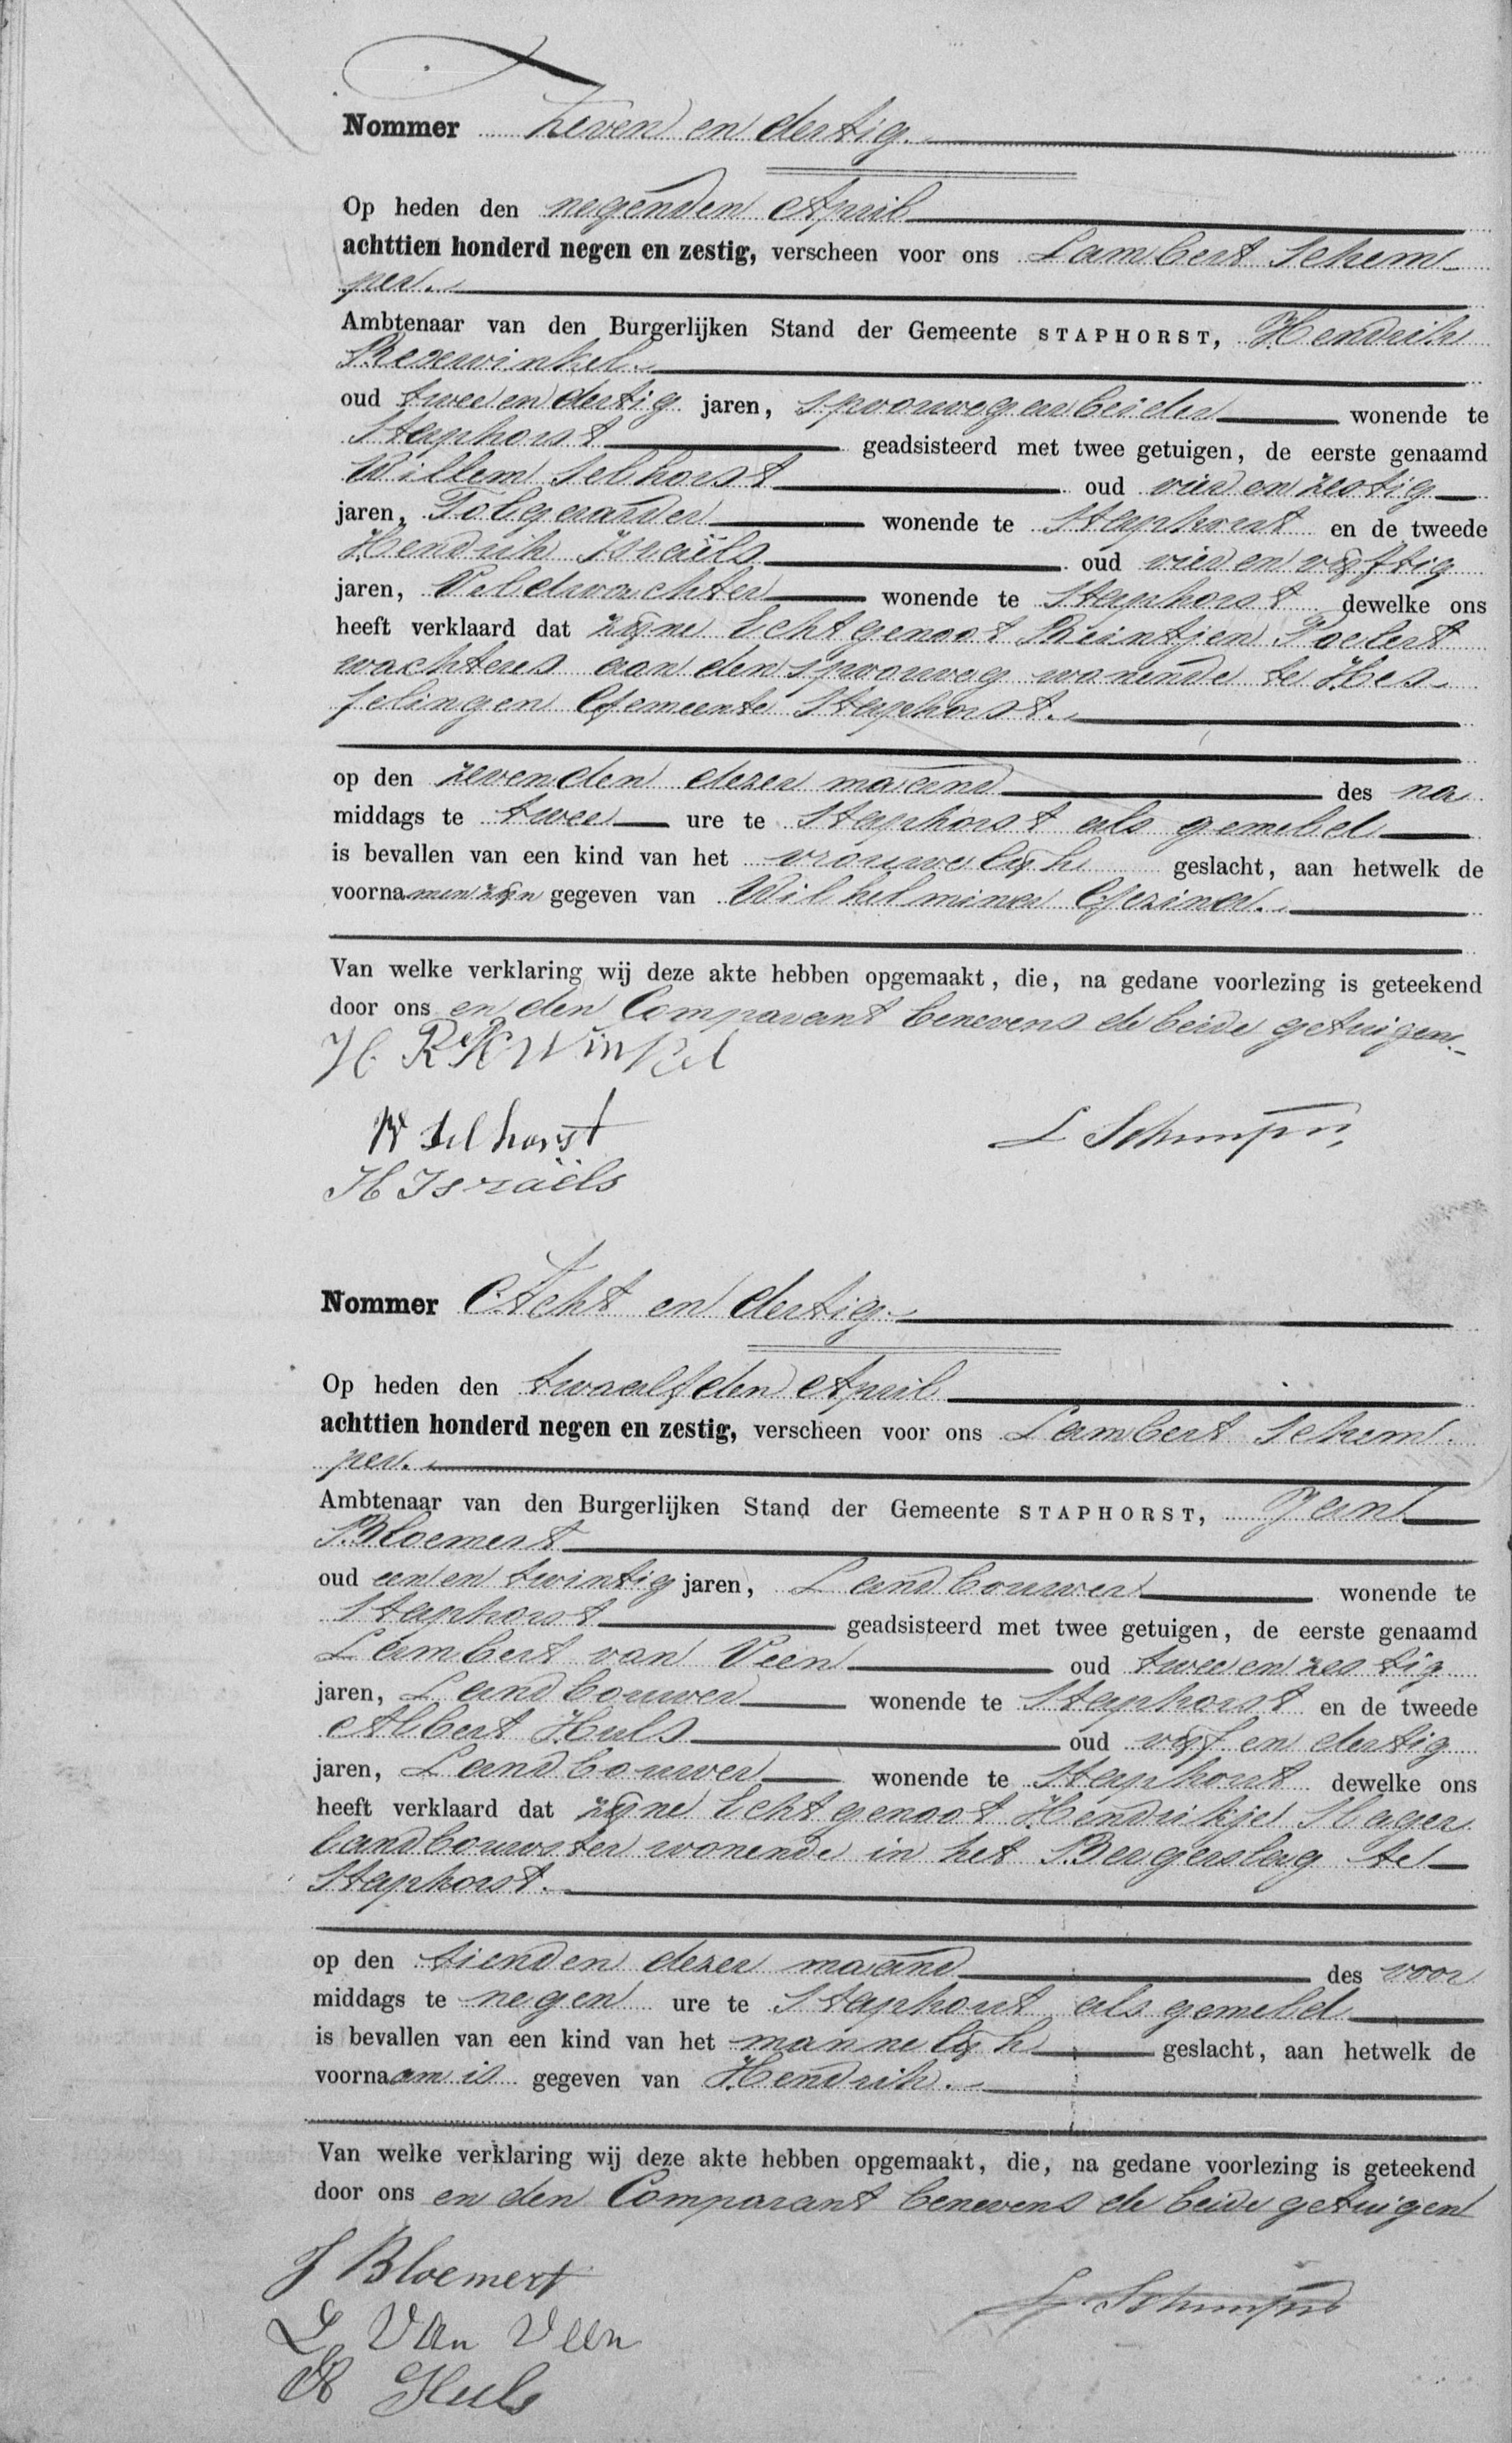 Nommer Zeven en dertig.
Op heden den negenden April
achttien honderd negen en zestig, verscheen voor ons Lambert Schem-
per.
Ambtenaar van den Burgerlijken Stand der Gemeente STAPHORST, Hendrik
Rezewinkel.
oud twee en dertig jaren, spoorwegarbeider wonende te
Staphorst geadsisteerd met twee getuigen, de eerste genaamd
Willem Selhorst oud vier en zestig
jaren, Tolgaarder wonende te Staphorst en de tweede
Hendrik Israëls oud vier en vijftig
jaren, Veldwachter wonende te Staphorst dewelke ons
heeft verklaard dat zijne Echtgenoot Reintjen Poelert
wachteres aan den spoorweg wonende te Hes-
selingen Gemeente Staphorst.
op den zevenden dezer maand des na
middags te twee ure te Staphorst als gemeld
is bevallen van een kind van het vrouwelijk geslacht, aan hetwelk de
voornamen zijn gegeven van Wilhelmina Gezina.
Van welke verklaring wij deze akte hebben opgemaakt, die, na gedane voorlezing is geteekend
door ons en den Comparant benevens de beide getuigen.
H Rezewinkel
W Selhorst
L Schemper
H Israëls
Nommer Acht en dertig
Op heden den twaalfden April
achttien honderd negen en zestig, verscheen voor ons Lambert Schem-
per.
Ambtenaar van den Burgerlijken Stand der Gemeente STAPHORST, Jan
Bloemert
oud een en twintig jaren, Landbouwer wonende te
Staphorst geadsisteerd met twee getuigen, de eerste genaamd
Lambert van Veen oud twee en zestig
jaren, Landbouwer wonende te Staphorst en de tweede
Albert Huls oud vijf en dertig
jaren, Landbouwer wonende te Staphorst dewelke ons
heeft verklaard dat zijne Echtgenoot Hendrikje Slager
landbouwster wonende in het Bergerslag te
Staphorst.
op den tienden dezer maand des voor
middags te negen ure te Staphorst als gemeld
is bevallen van een kind van het mannelijk geslacht, aan hetwelk de
voornaam is gegeven van Hendrik.
Van welke verklaring wij deze akte hebben opgemaakt, die, na gedane voorlezing is geteekend
door ons en den Comparant benevens de beide getuigen
J Bloemert
L Schemper
L Van Veen
A Huls